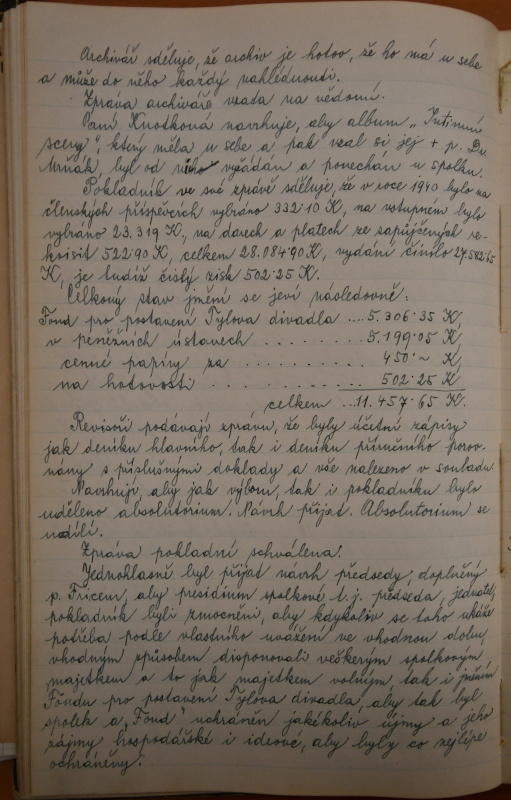 Archivář sděluje, že archiv je hotov, že ho má u sebe
a může do něho každý nahlédnouti.
Zpráva archiváře vzata na vědomí.
Paní Knotková navrhuje, aby album „Intimní
sceny", který měla u sebe a pak vzal si jej + p. Dr.
Mrňák, byl od něho vyžádán a ponechán u spolku.
Pokladník ve své zprávě sděluje, že v roce 1940 bylo na
členských příspěvcích vybráno 332·10 K, na vstupném bylo
vybráno 23.319 K, na darech a platech ze zapůjčených re-
kvisit 522·90 K, celkem 28.084·90 K, vydání činilo 27.582·65
K, je tudíž čistý zisk 502·25 K.
Celkový stav jmění se jeví následovně:
Fond pro postavení Tylova divadla ....5.306·35 K,
v peněžních ústavech . . . . . . . . 5.199·05 K,
cenné papíry za . . . . . . . . . 450·~ K,
na hotovosti . . . . . . . . . . 502·25 K,
celkem ...11.457·65 K.
Revisoři podávají zprávu, že byly účetní zápisy
jak deníku hlavního, tak i deníku příručního porov-
nány s příslušnými doklady a vše nalezeno v souladu.
Navrhují, aby jak výboru, tak i pokladníku bylo
uděleno absolutorium. Návrh přijat. Absolutorium se
udílí.
Zpráva pokladní schválena.
Jednohlasně byl přijat návrh předsedy, doplněný
p. Fričem, aby presidium spolkové t.j. předseda, jednatel,
pokladník byli zmocněni, aby kdykoliv se toho ukáže
potřeba podle vlastního uvážení ve vhodnou dobu,
vhodným způsobem disponovali veškerým spolkovým
majetkem a to jak majetkem volným, tak i jměním
Fondu pro postavení Tylova divadla, aby tak byl
spolek a „Fond" uchráněn jakékoliv újmy a jeho
zájmy hospodářské i ideové, aby byly co nejlépe
ochráněny.